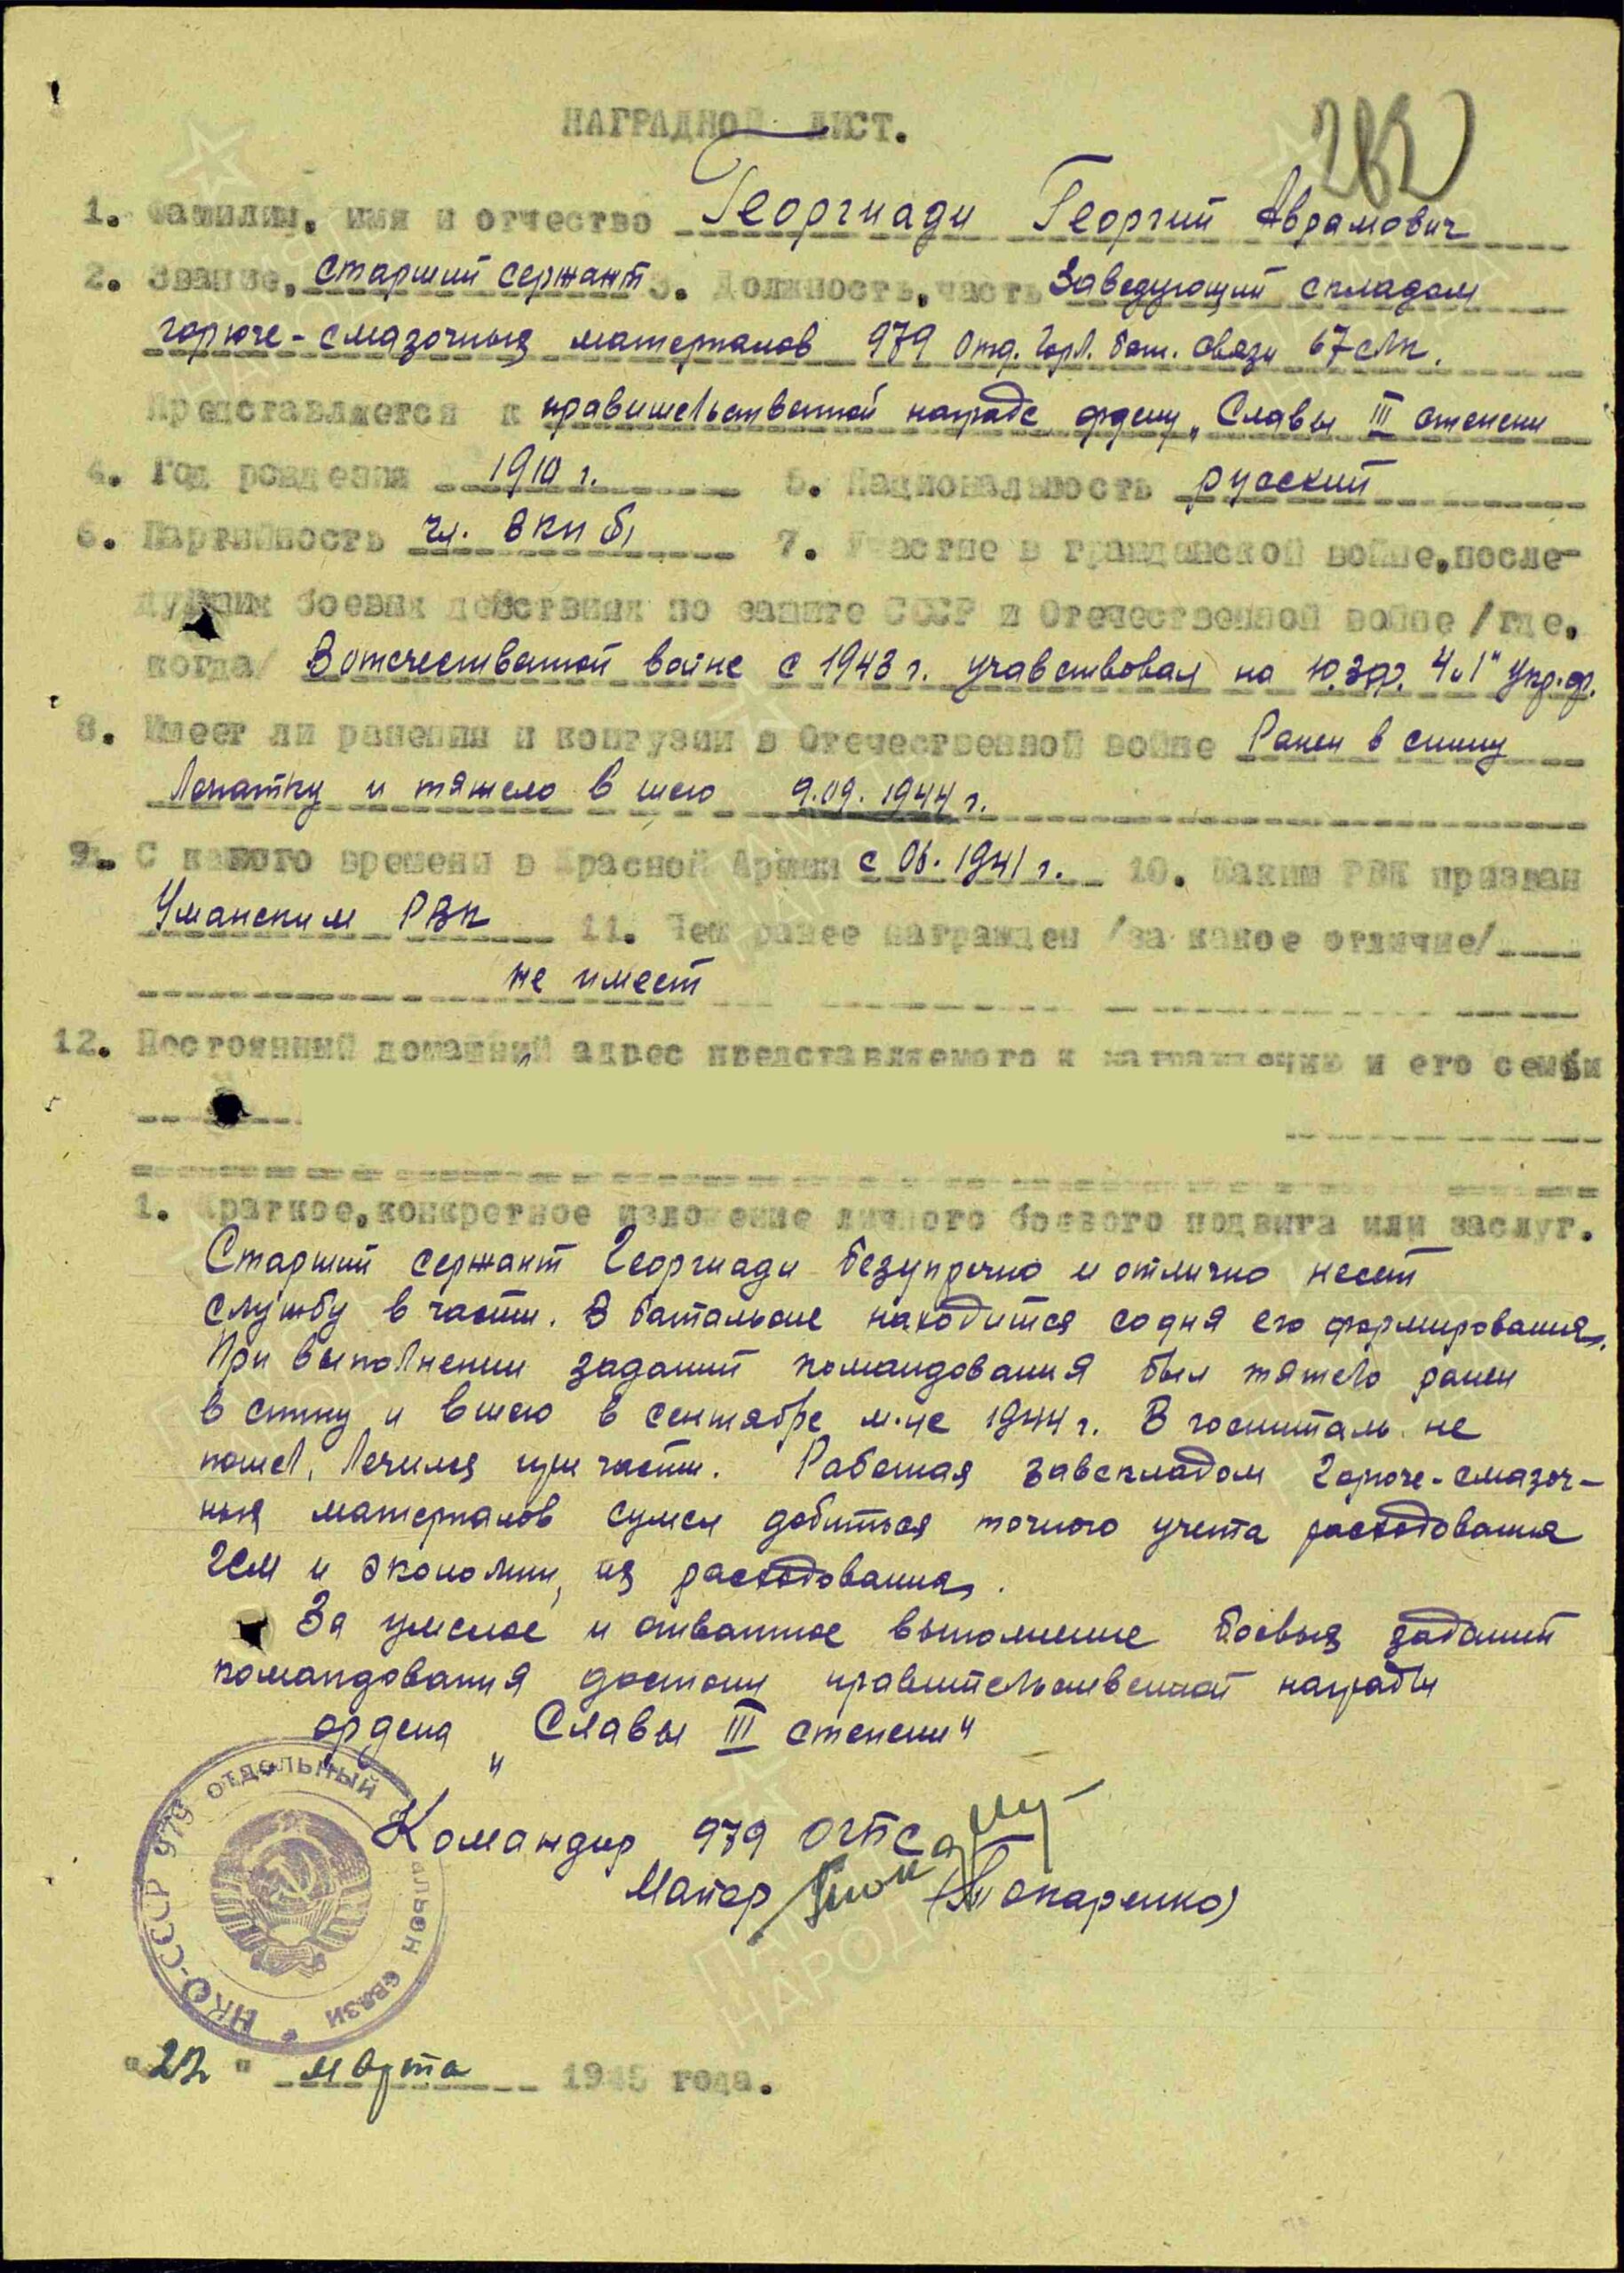 НАГРАДНОЙ ЛИСТ.
1. Фамилия, имя и отчество Георгиади Георгий Аврамович
2. Звание, старший сержант 3. Должность, часть Заведующий складом
горюче-смазочных материалов 979 отд. Корп. бат. связи 67 ск.
Представляется к правительственной награде ордену „Славы III степени
4. Год рождения 1910 г. 5. Национальность русский
6. Партийность чл. ВКП б/ 7. Участие в гражданской войне, после-
дующих боевых действиях по защите СССР и Отечественной войне /где,
когда/ В отечественной войне с 1943 г. учавствовал на Ю.З.ф. 4 и 1" Укр. ф.
8. Имеет ли ранения и контузии в Отечественной войне Ранен в спину
лопатку и тяжело в шею 9.09.1944 г.
9. С какого времени в Красной Армии с 06.1941 г. 10. Каким РВК призван
Уманским РВК 11. Чем ранее награжден /за какое отличие/
не имеет
12. Постоянный домашний адрес представляемого к награждению и его семьи
1. Краткое, конкретное изложение личного боевого подвига или заслуг.
Старший сержант Георгиади безупречно и отлично несет
службу в части. В батальоне находится со дня его формирования.
При выполнении заданий командования был тяжело ранен
в спину и в шею в сентябре м-це 1944 г. В госпиталь не
пошел, лечился при части. Работая завскладом горюче-смазоч-
ных материалов сумел добиться точного учета расходования
ГСМ и экономии, их расходования.
За умелое и отважное выполнение боевых заданий
командования достоин правительственной награды
ордена „Славы III степени"
Командир 979 ОКБС
Майор (Токаренко)
НКО-СССР 979 ОТДЕЛЬНЫЙ БАТАЛЬОН СВЯЗИ
"22" марта 1945 года.
ПАМЯТЬ
НАРОДА